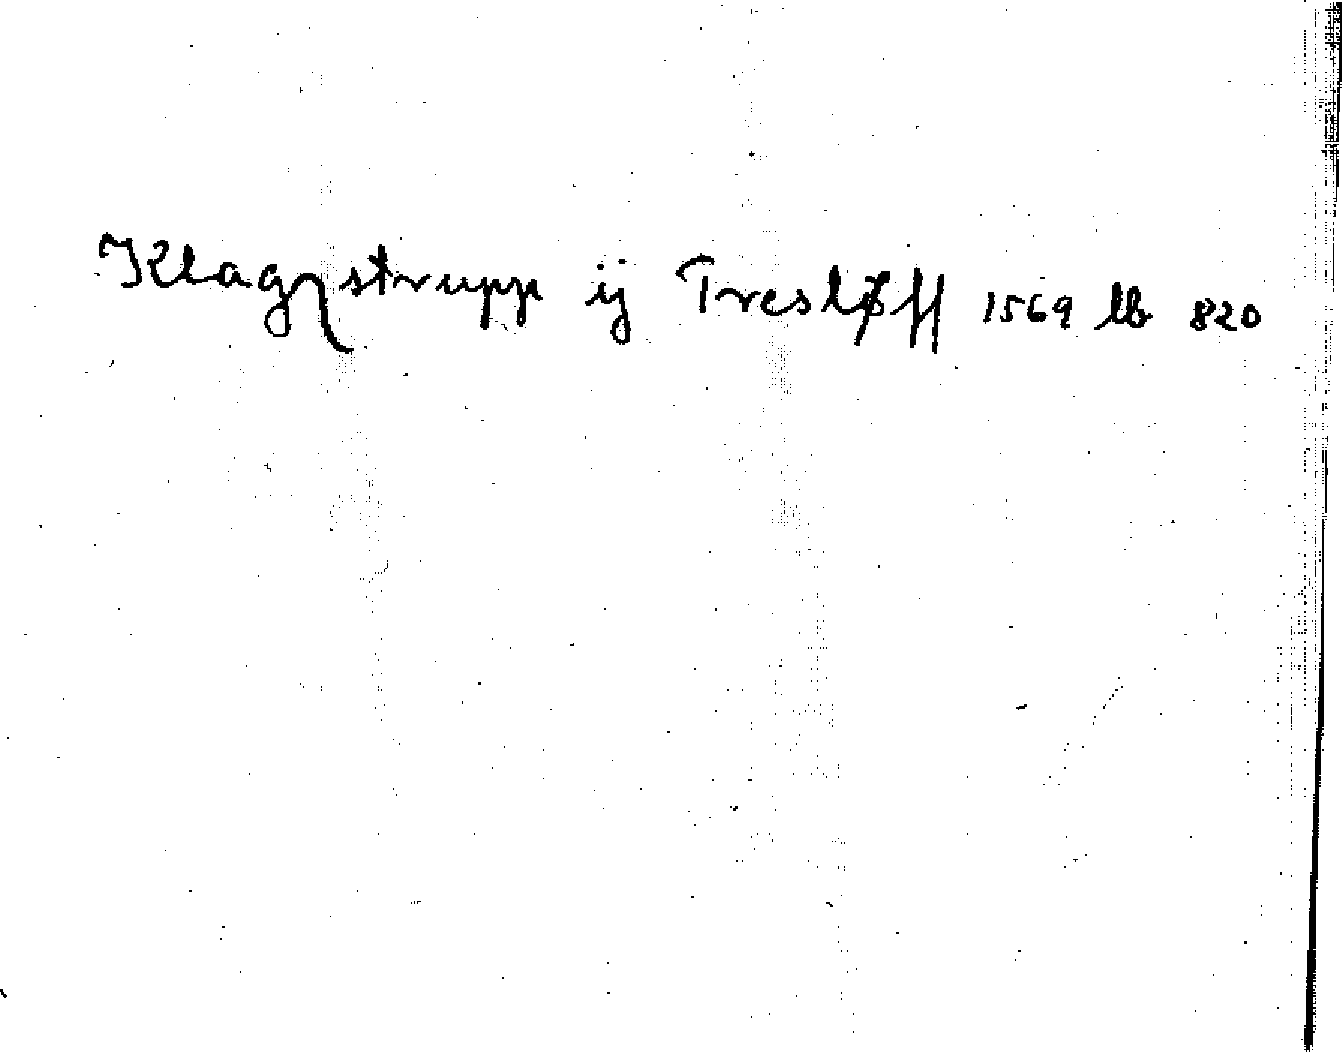 Klagstrupp ij Tresløff 1569 lb 820